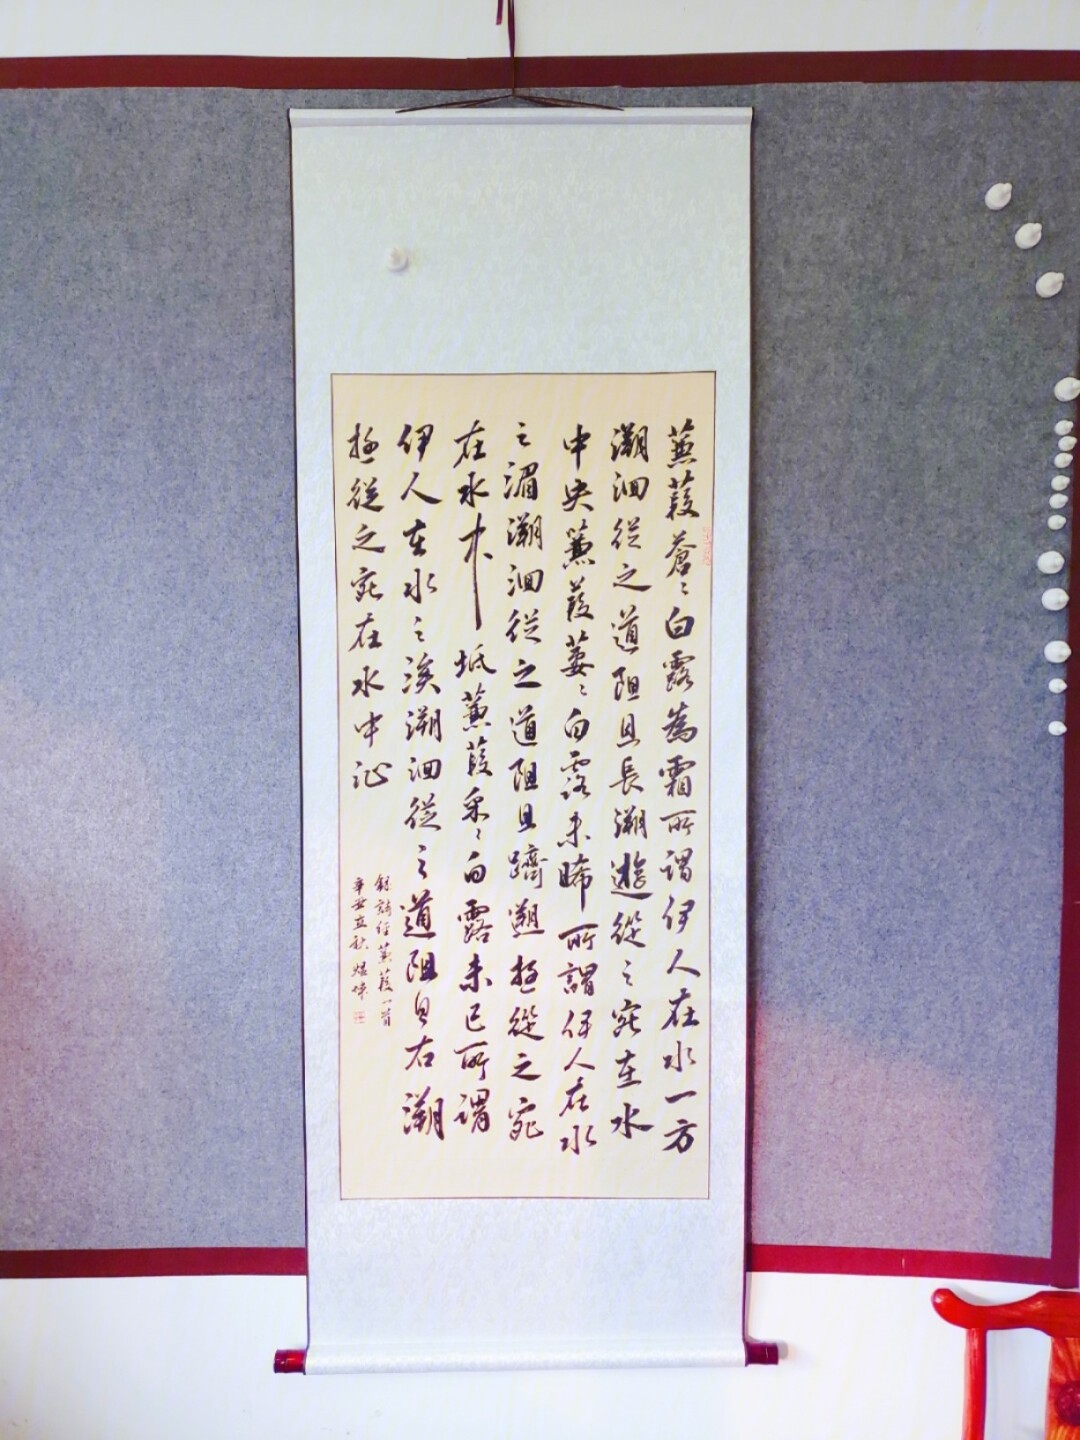 蒹葭蒼〻白露為霜所謂伊人在水一方
溯洄從之道阻且長溯遊從之宛在水
中央蒹葭萋〻白露未晞所謂伊人在水
之湄溯洄從之道阻且躋遡游從之宛
在水中坻蒹葭采〻白露未已所謂
伊人在水之涘溯洄從之道阻且右溯
游從之宛在水中沚
錄詩經蒹葭一首
辛丑立秋